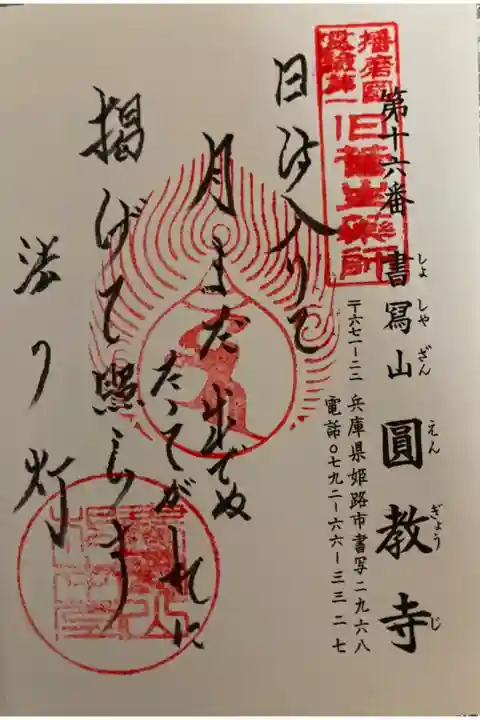 播磨國
第十六番 書寫山 圓教寺
しょしゃざん えんぎょうじ
〒六七一-二二 兵庫県姫路市書写二九六八
電話〇七九二-六六-三三二七
日は入りて
月まだ出でぬ
たそがれに
掲げて照らす
法の灯